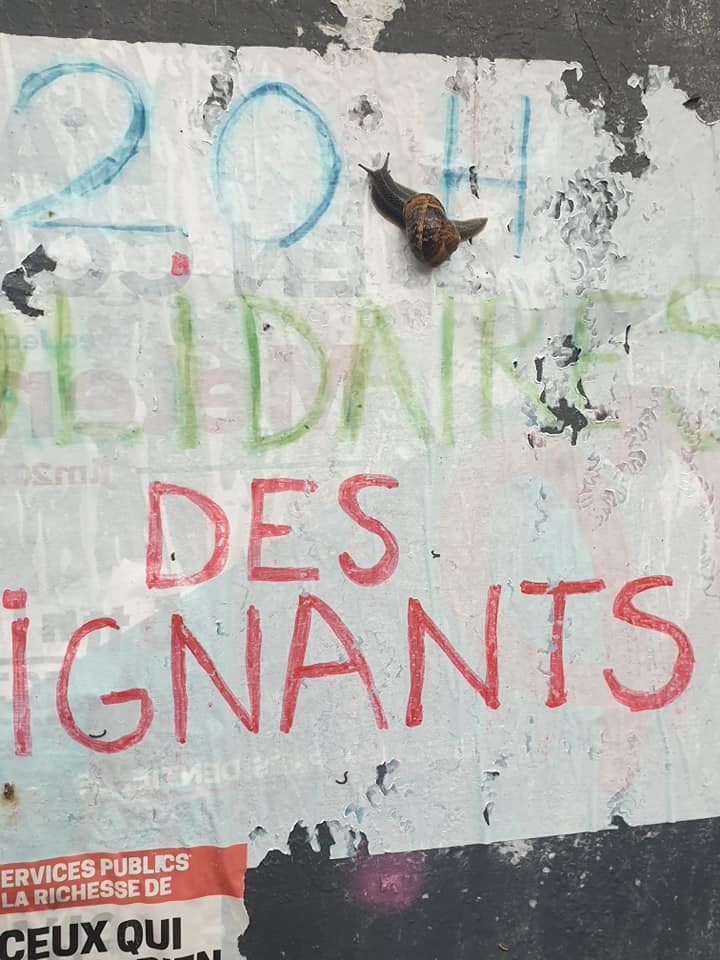 20H
OLIDAIRES
DES
IGNANTS
ERVICES PUBLICS
LA RICHESSE DE
CEUX QUI